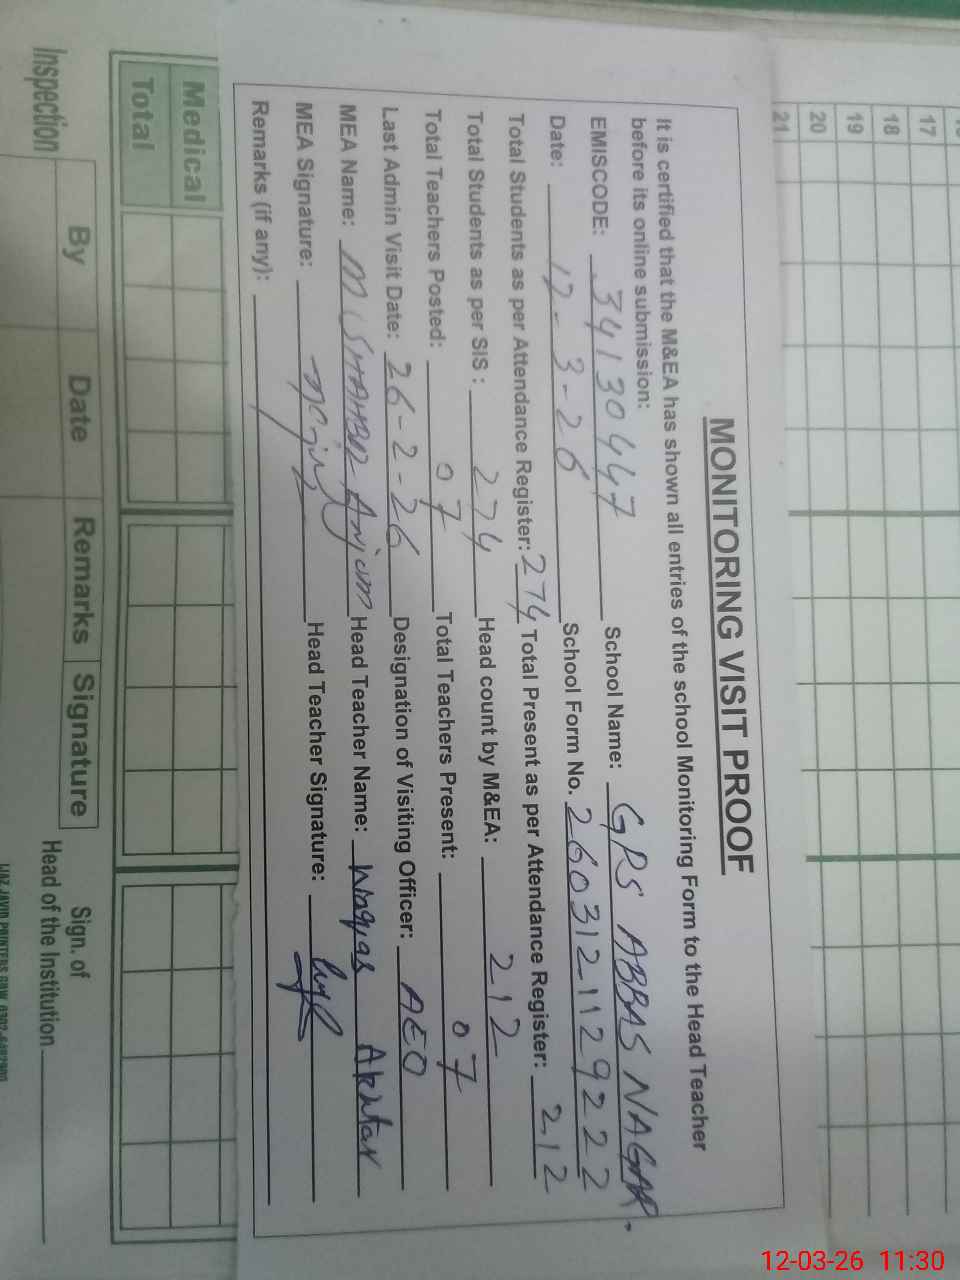 MONITORING VISIT PROOF
It is certified that the M&EA has shown all entries of the school Monitoring Form to the Head Teacher
before its online submission:
EMISCODE: 34130447 School Name: GPS ABBAS NAGAR.
Date: 12-3-26 School Form No. 260312-1129222
Total Students as per Attendance Register: 274 Total Present as per Attendance Register: 212
Total Students as per SIS : 274 Head count by M&EA: 212
Total Teachers Posted: 07 Total Teachers Present: 07
Last Admin Visit Date: 26-2-26 Designation of Visiting Officer: AEO
MEA Name: M Anjum Head Teacher Name: Akhtar
MEA Signature: Head Teacher Signature:
Remarks (if any):
17
18
19
20
21
Medical
Total
Inspection
By Date Remarks Signature
Sign. of
Head of the Institution
12-03-26 11:30